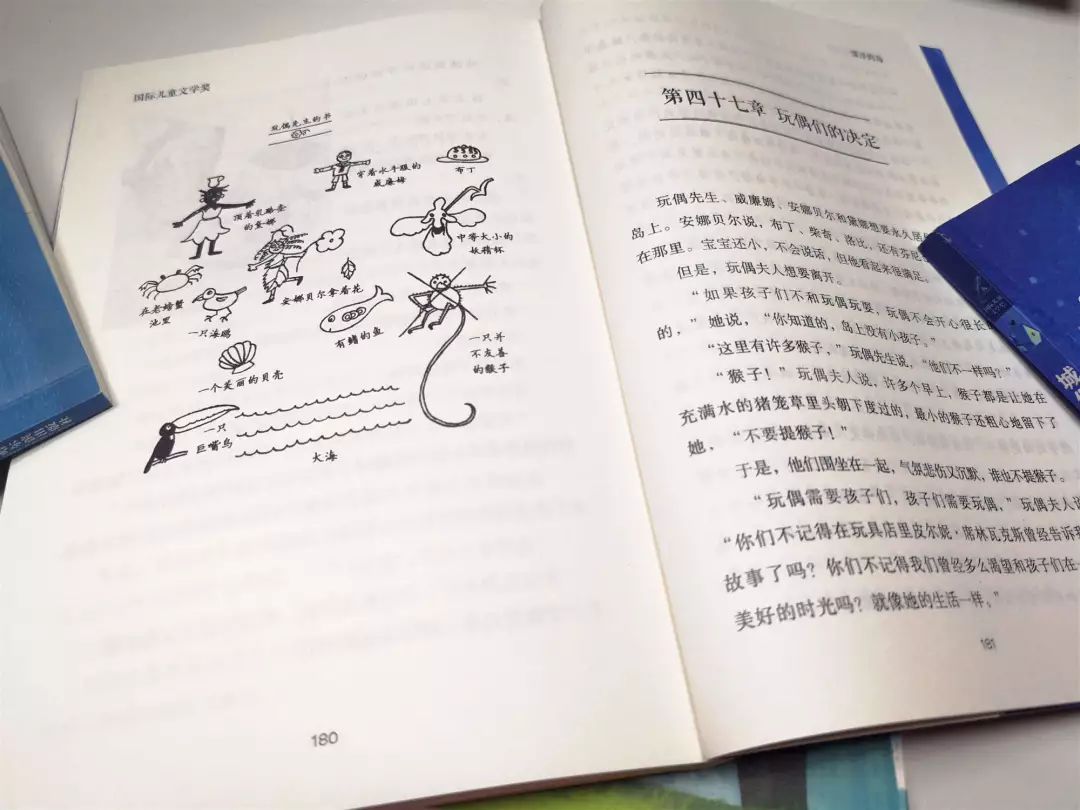 国际儿童文学奖
玩偶先生的书
穿着水手服的
威廉姆
布丁
顶着乳酪壶
的黛娜
中等大小的
妖精杯
安娜贝尔拿着花
在老螃蟹
池里
一只海鸥
有猪的鱼
一只并
不友善
的猴子
一个美丽的贝壳
一只
巨嘴鸟
大海
180
第四十七章 玩偶们的决定
玩偶先生、威廉姆、安娜贝尔和黛娜想要永久居
岛上。安娜贝尔说，布丁、柴奇、洛比，还有芬尼
在那里。宝宝还小，不会说话，但他看起来很满足。
但是，玩偶夫人想要离开。
“如果孩子们不和玩偶玩耍，玩偶不会开心很长
的，”她说，“你知道的，岛上没有小孩子。”
“这里有许多猴子，”玩偶先生说，“他们不一样吗？”
“猴子！”玩偶夫人说，许多个早上，猴子都是让她在
充满水的猪笼草里头朝下度过的，最小的猴子还粗心地留下了
她，“不要提猴子！”
于是，他们围坐在一起，气氛悲伤又沉默，谁也不提猴子。
“玩偶需要孩子们，孩子们需要玩偶，”玩偶夫人说
“你们不记得在玩具店里皮尔妮·席林瓦克斯曾经告诉我
故事了吗？你们不记得我们曾经多么渴望和孩子们在一
美好的时光吗？就像她的生活一样。”
181
城